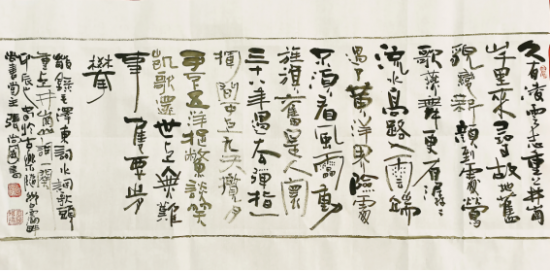 久有凌雲志重上井岡
山千里來尋故地舊
貌變新顏到處鶯
歌燕舞更有潺潺
流水高路入雲端
過了黃洋界險處
不須看風雷動
旌旗奮是人寰
三十八年過去彈指一
揮間可上九天攬月
可下五洋捉鱉談笑
凱歌還世上無難
事只要肯登
攀
錄毛澤東詞水調歌頭
重上井岡山一